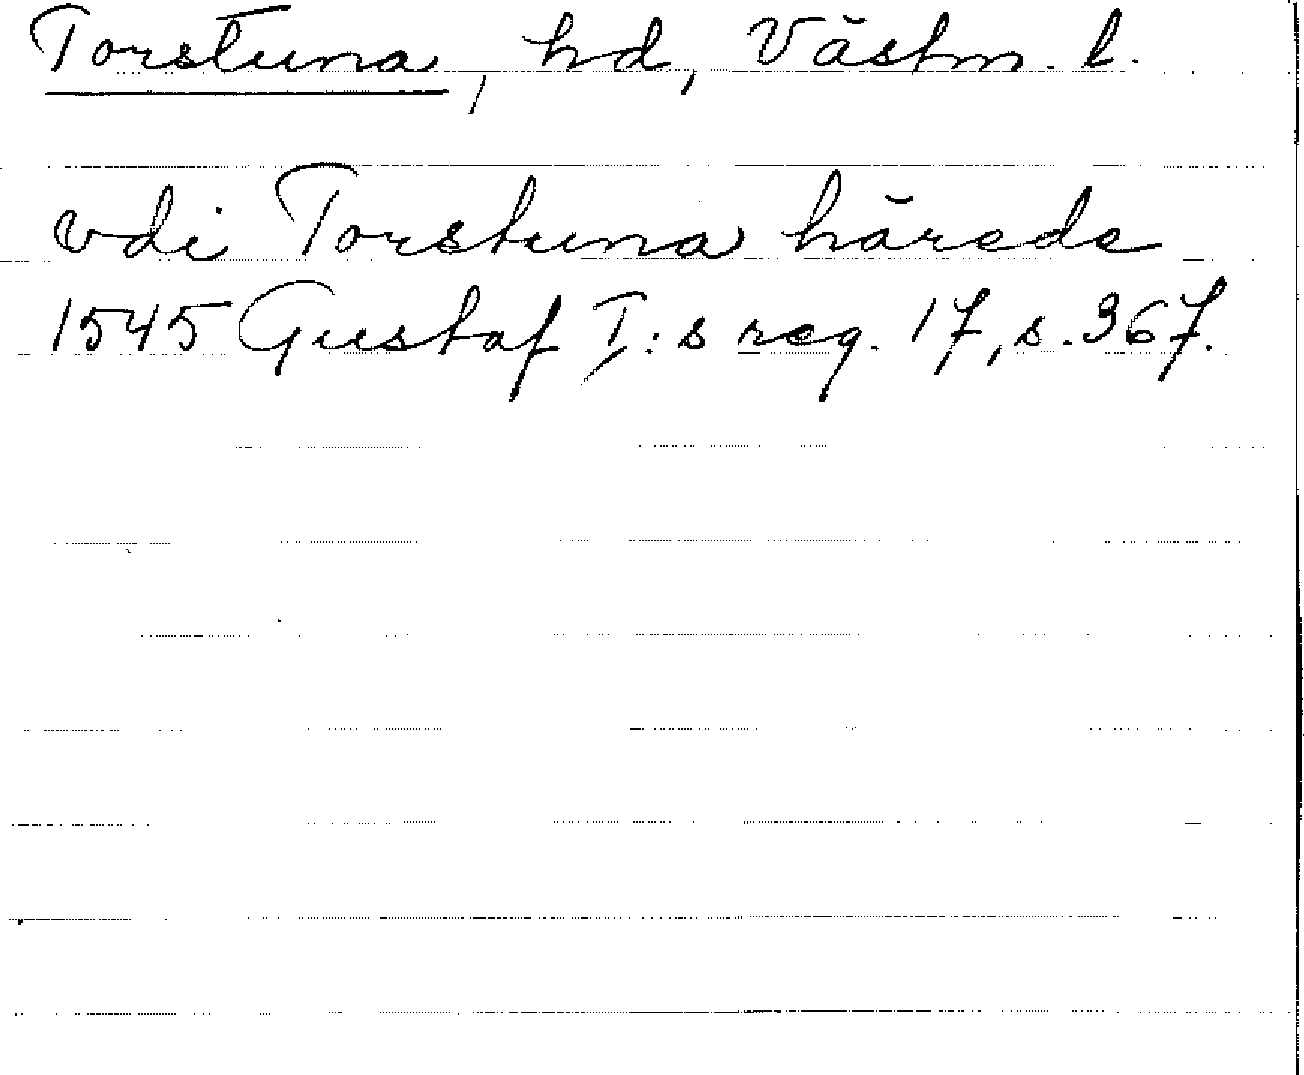 Torstuna, hd, Västm. l.
vdi Torstuna härede
1545 Gustaf I:s reg. 17, s. 367.